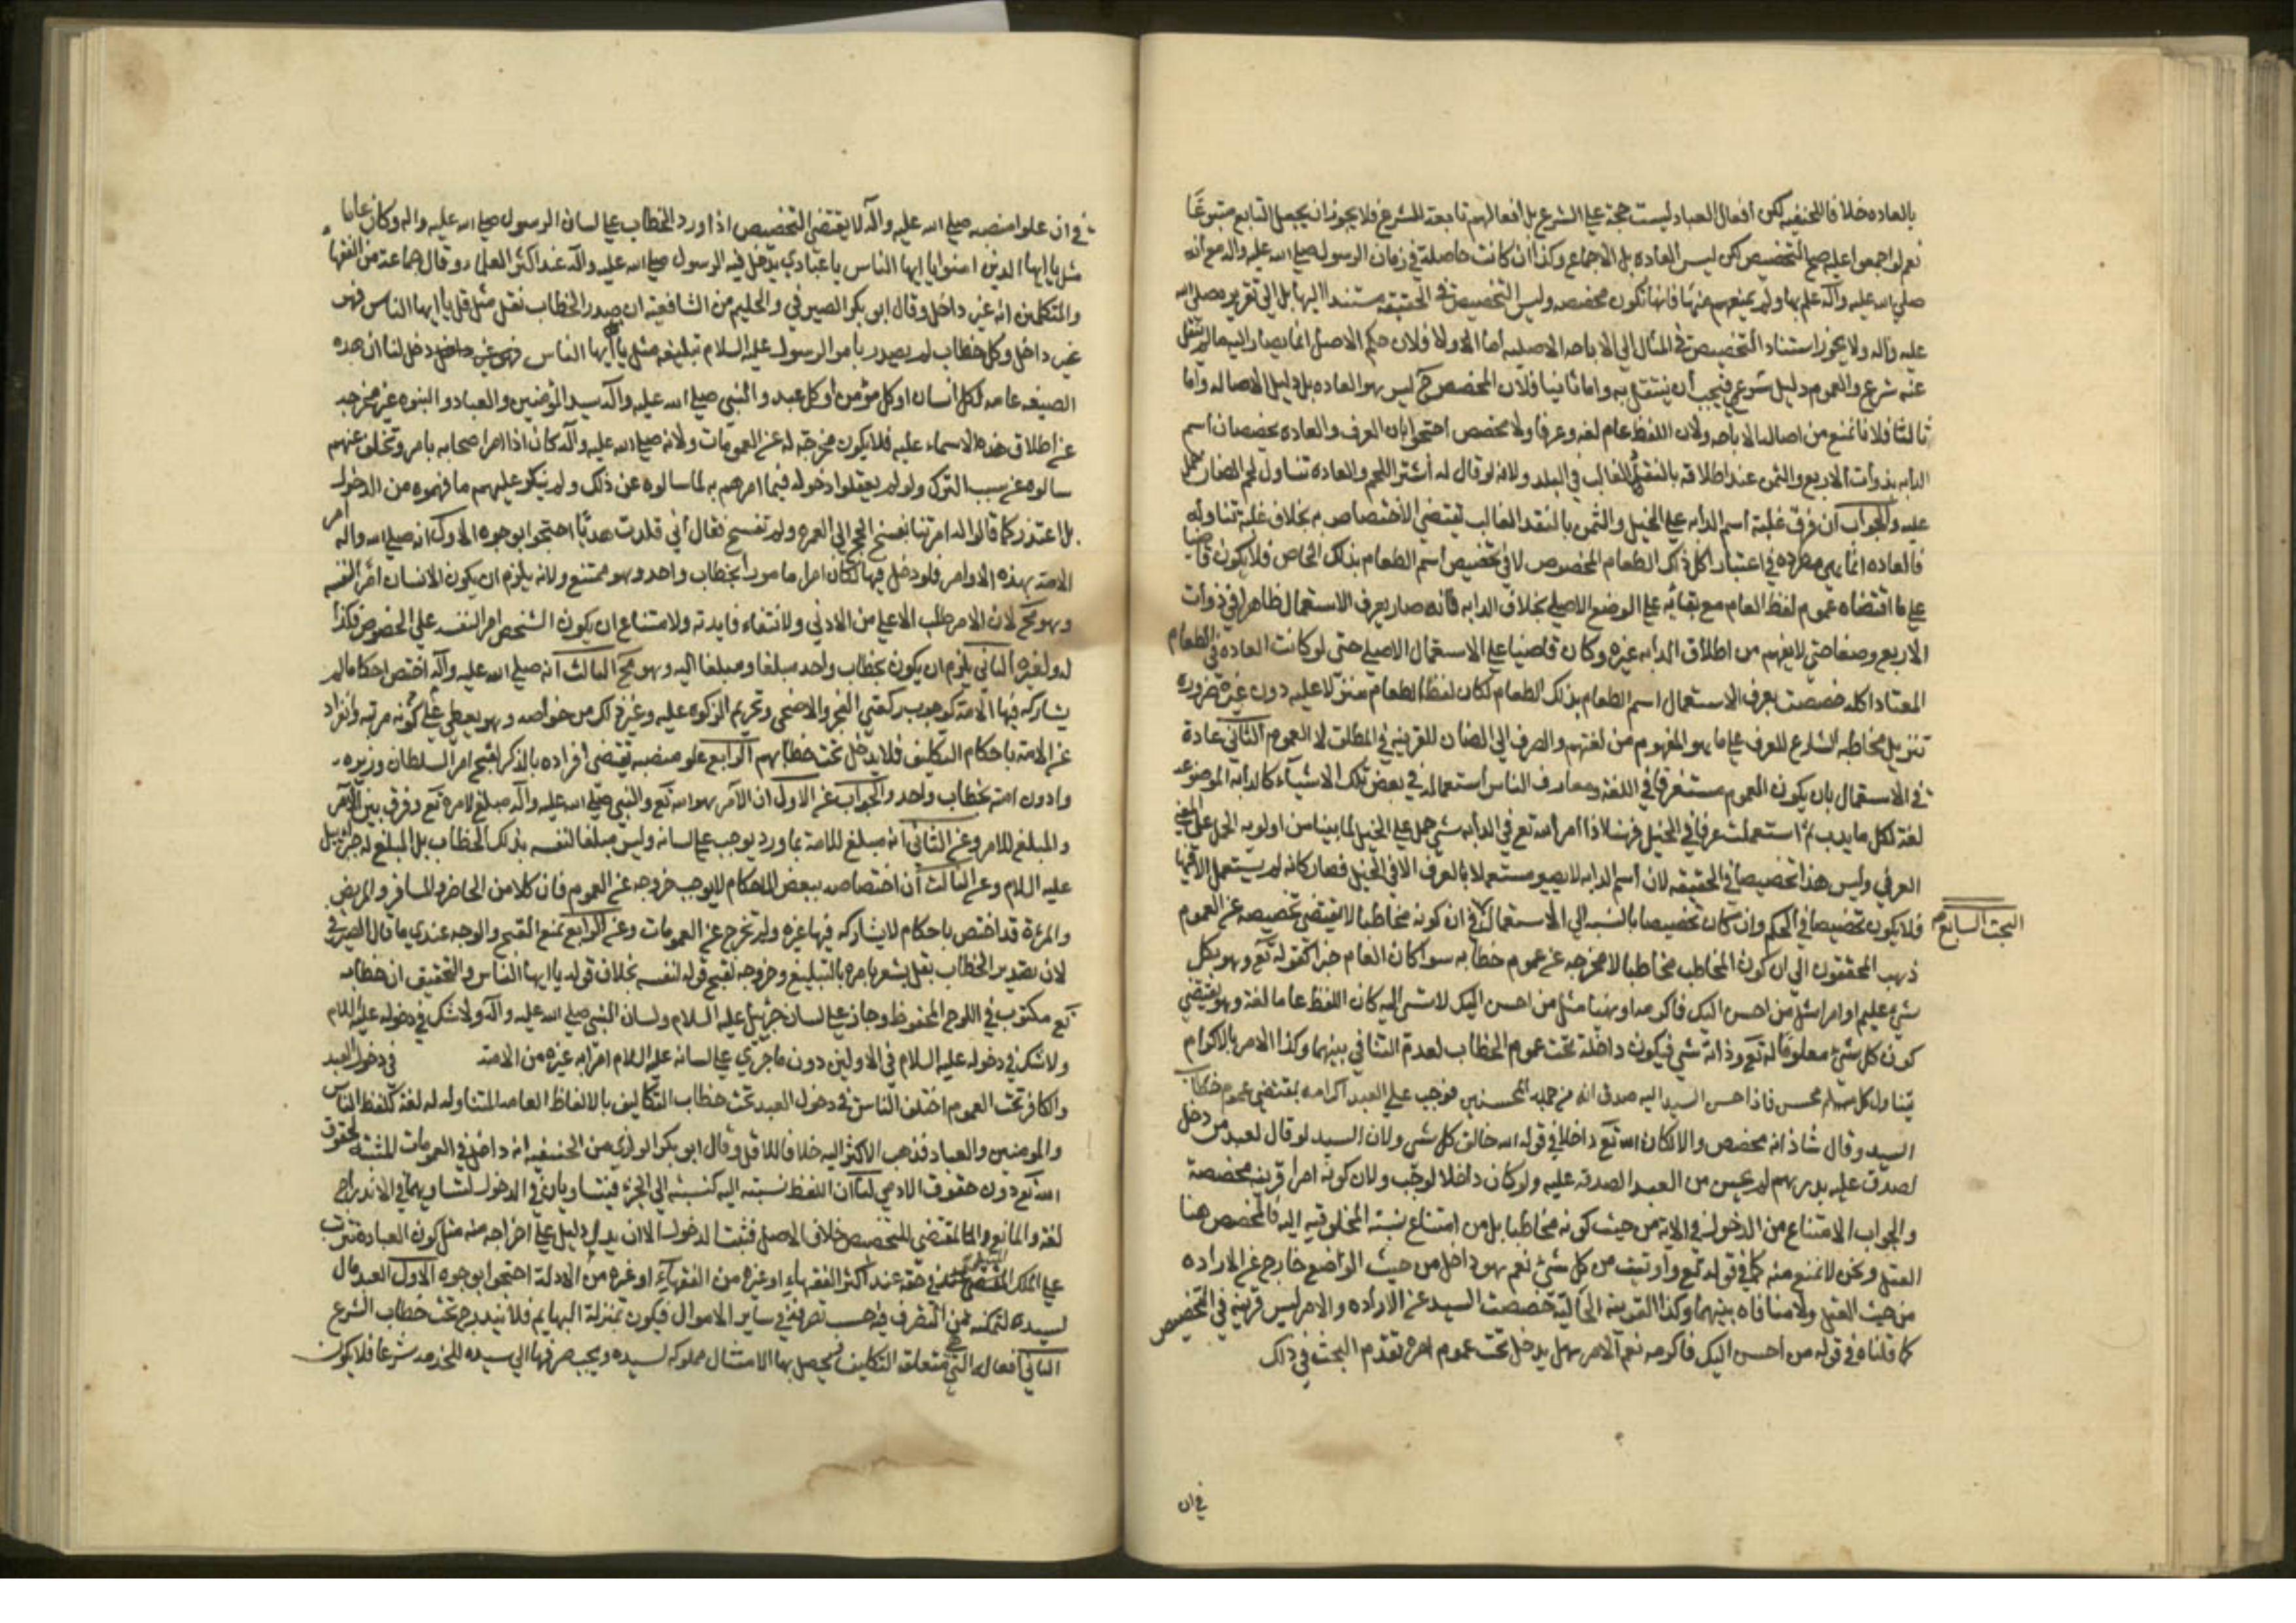 بالعاده خلافا للحنفيه لكن أفعال العباد ليست حجة على الشرع بل أفعالهم تابعة للشرع فلا يجوز ان يجعل التابع متبوعا
نعم لو اجمعوا عليه صح التخصيص لكن ليس بالعاده بل الاجماع وكذا ان كانت حاصلة في زمان الرسول صلى الله عليه واله مع أنه
صلى الله عليه وآله علم بها ولم يمنعهم عنها فانها تكون مخصصه وليس التخصيص في الحقيقه مستندا اليها بل الى تقريره صلى الله
عليه وآله ولا يجوز استناد التخصيص في المثال الى الاباحه الاصليه أما اولا فلان حكم الاصل انما يصار اليه ما لم ينقل
عنه شرع والعموم دليل شرعي فيجب أن ينتقل به واما ثانيا فلان المخصص ح ليس هو العاده بل دليل الاصاله واما
ثالثا فلانا نمنع من اصالة الاباحه ولان اللفظ عام لغه وعرفا ولا مخصص احتجوا بان العرف والعاده يخصصان اسم
الدابه بذوات الاربع والثمن عند اطلاقه بالنقد الغالب في البلد ولانه لو قال له أشتر اللحم والعاده تناول لحم الضان حمل
عليه والجواب أن فرق غلبة اسم الدابه على الخيل والثمن بالنقد الغالب يقتضي الاختصاص به بخلاف غلبة تناوله
فالعاده انما هي مطرده في اعتبار اكل ذلك الطعام المخصوص لا في تخصيص اسم الطعام بذلك الخاص فلا يكون قاضيا
على ما اقتضاه عموم لفظ العام مع بقائه على الوضع الاصلي بخلاف الدابه فانه صار بعرف الاستعمال ظاهرا في ذوات
الاربع وصفا حتى لا يفهم من اطلاق الدابه غيره وكان قاضيا على الاستعمال الاصلي حتى لو كانت العاده في الطعام
المعتاد اكله خصصت بعرف الاستعمال اسم الطعام بذلك الطعام لكان لفظ الطعام منزلا عليه دون غيره ضروره
تنزيل مخاطبه الشارع للعرف على ما هو المفهوم من لغتهم والصرف الى الضان للقرينه في المطلق لا العموم الثاني عادة
في الاستعمال بان يكون العموم مستغرقا في اللغه وتعارف الناس استعماله في بعض تلك الاشيآء كالدابه الموضوعه
لغة لكل ما يدب ثم استعملت عرفا في الخيل فرضا فاذا امر الله تع في الدابه بشي حمل على الخيل لما بينا من اولويه الحمل على المعنى
العرفي وليس هذا تخصيصا في الحقيقه لان اسم الدابه لا يصير مستعملا بالعرف الا في الخيل فصار كانه لم يستعمل الا فيها
فلا يكون تخصيصا في الحكم وان كان تخصيصا بالنسبه الى الاستعمال في ان كونه مخاطبا لا يقتضي تخصيصه عن العموم
البحث السابع
ذهب المحققون الى ان كون المخاطب مخاطبا لا يخرجه عن عموم خطابه سوا كان العام خبرا كقوله تع وهو بكل
شيء عليم او امرا مثل من احسن اليك فاكرمه او نهيا مثل من احسن اليك لا تسئ اليه كان اللفظ عاما لغة وهو يقتضي
كون كل شيء معلوما له تع وذاته شي فيكون داخلة تحت عموم الخطاب لعدم التنافي بينهما وكذا الامر بالاكرام
يتناول كل مسلم محسن فاذا احسن السيد اليه صدق انه من جمله المحسنين فوجب على العبد اكرامه بمقتضي عموم خطاب
السيد وقال شاذ انه مخصص والا لكان الله تع داخلا في قوله الله خالق كل شي ولان السيد لو قال لعبده من دخل
تصدق عليه بدرهم لم يحسن من العبد الصدقه عليه ولو كان داخلا لوجب ولان كونه امرا قرينه مخصصة
والجواب الامتناع من الدخول في الاية من حيث كونه مخاطبا بل من امتناع نسبة المخلوقيه اليه فالمخصص هنا
العقل ونحن لا نمنع منه كما في قوله تع واوتيت من كل شئ نعم هو داخل من حيث الواضع خارج عن الاراده
من حيث العقل ولا منافاه بينهما وكذا القرينه الحاليه خصصت السيد عن الاراده والامر ليس قرينه في التخصيص
كما قلناه في قوله من احسن اليك فاكرمه نعم الامر هل يدخل تحت عموم امره تقدم البحث في ذلك
في ان
في ان علو منصبه صلى الله عليه وآله لا يقتضي التخصيص اذا ورد الخطاب على لسان الرسول صلى الله عليه واله وكان عاما
مثل يا ايها الذين امنوا يا ايها الناس يا عبادي يدخل فيه الرسول صلى الله عليه وآله عند اكثر العلماء وقال جماعة من الفقها
والمتكلمين انه غير داخل وقال ابو بكر الصيرفي والحليمي من الشافعية ان صدر الخطاب بقل مثل قل يا ايها الناس فهو
غير داخل وكل خطاب لم يصدر بامر الرسول عليه السلام تبليغه مثل يا أيها الناس دخل لنا ان هذه
الصيغه عامه لكل انسان او كل مؤمن او كل عبد والنبي صلى الله عليه وآله سيد المؤمنين والعباد والنبوه غير مخرجه
عن اطلاق هذه الاسماء عليه فلا يكون مخرجة له عن العمومات ولانه صلى الله عليه وآله كان اذا امر اصحابه بامر وتخلف عنهم
سالوه عن سبب الترك ولو لم يعقلوا دخوله فيما امرهم به لما سالوه عن ذلك ولم ينكر عليهم ما فهموه من الدخول
بل اعتذر كما قالوا له امرتنا بفسخ الحج الى العمره ولم تفسخ فقال أني قلدت هديا احتجوا بوجوه الاول انه صلى الله واله امر
الامة بهذه الاوامر فلو دخل فيها لكان امرا مامورا بخطاب واحد وهو ممتنع ولانه يلزم ان يكون الانسان آمرا لنفسه
وهو مح لان الامر طلب الاعلى من الادني ولانتفاء فايدته ولامتناع ان يكون الشخص امر النفسه على الخصوص فكذا
له ولغيره الثاني يلزم ان يكون بخطاب واحد مبلغا ومبلغا اليه وهو مح الثالث انه صلى الله عليه وآله اختص احكاما لم
يشاركه فيها الامة كوجوب ركعتي الفجر والاضحى وتحريم الزكوه عليه وغير ذلك من خواصه وهو يعطي على كونه مرتبه وانفراد
عن الامة باحكام التكاليف فلا يدخل تحت خطابهم الرابع علو منصبه يقتضي أفراده بالذكر لقبح امر السلطان وزيره
وادون امته بخطاب واحد والجواب عن الاول ان الآمر هو الله تع والنبي صلى الله عليه وآله مبلغ لامره تع وفرق بين الآمر
والمبلغ للامر وعن الثاني انه مبلغ للامة بما ورد يوجب على لسانه وليس مبلغا لنفسه بذلك الخطاب بل المبلغ له جبرئيل
عليه السلام وعن الثالث أن اختصاصه ببعض الاحكام لا يوجب خروجه عن العموم فان كلا من الحاضر والمسافر والمريض
والمرءة قد اختص باحكام لا يشاركه فيها غيره ولم تخرج عن العمومات وعن الرابع بمنع القبح والوجه عندي ما قال الصيرفي
لان تصدير الخطاب بقل يشعر بامره بالتبليغ وخروجه لقبح قوله لنفسه بخلاف قوله يا ايها الناس والتحقيق ان خطابه
تع مكتوب في اللوح المحفوظ وجاز على لسان جبرئيل عليه السلام ولسان النبي صلى الله عليه وآله ولا شك في دخوله عليه السلام
ولا شك في دخوله عليه السلام في الاولين دون ما جري على لسانه عليه السلام امرا به غيره من الامة في دخول العبد
والكافر تحت العموم اختلف الناس في دخول العبد تحت خطاب التكاليف بالالفاظ العامه المتناوله له لغة كلفظ الناس
والمومنين والعباد فذهب الاكثر اليه خلافا للاقل وقال ابو بكر الرازي من الحنفيه انه داخل في العمومات المثبتة لحقوق
الله تع دون حقوق الادمي لنا ان اللفظ نسبته اليه كنسبته الى الحر فيتساويان في الدخول لتساويهما في الاندراج
لغة والمانع المقتضي للتخصيص خلاف الاصل فثبت الدخول الا ان يدل دليل على اخراجه منه مثل كون العباده تترتب
على الملك في حقه عند اكثر الفقهاء او غيره من الفقهاء او غيره من الادلة احتجوا بوجوه الاول العبد مال
لسيده لتمكنه من التصرف فيه حسب تصرفه في ساير الاموال فيكون بمنزلة البهايم فلا يندرج تحت خطاب الشرع
الثاني أفعاله التي متعلقه التكاليف فيحصل بها الامتثال مملوكه لسيده ويجب صرفها الى سيده للخدمه شرعا فلا يكون